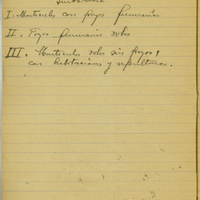 I. Montículos con fogos funerarios
II. Fogos funerarios solos
III. Montículos solos sin fogos y
con habitaciones y sepulturas.